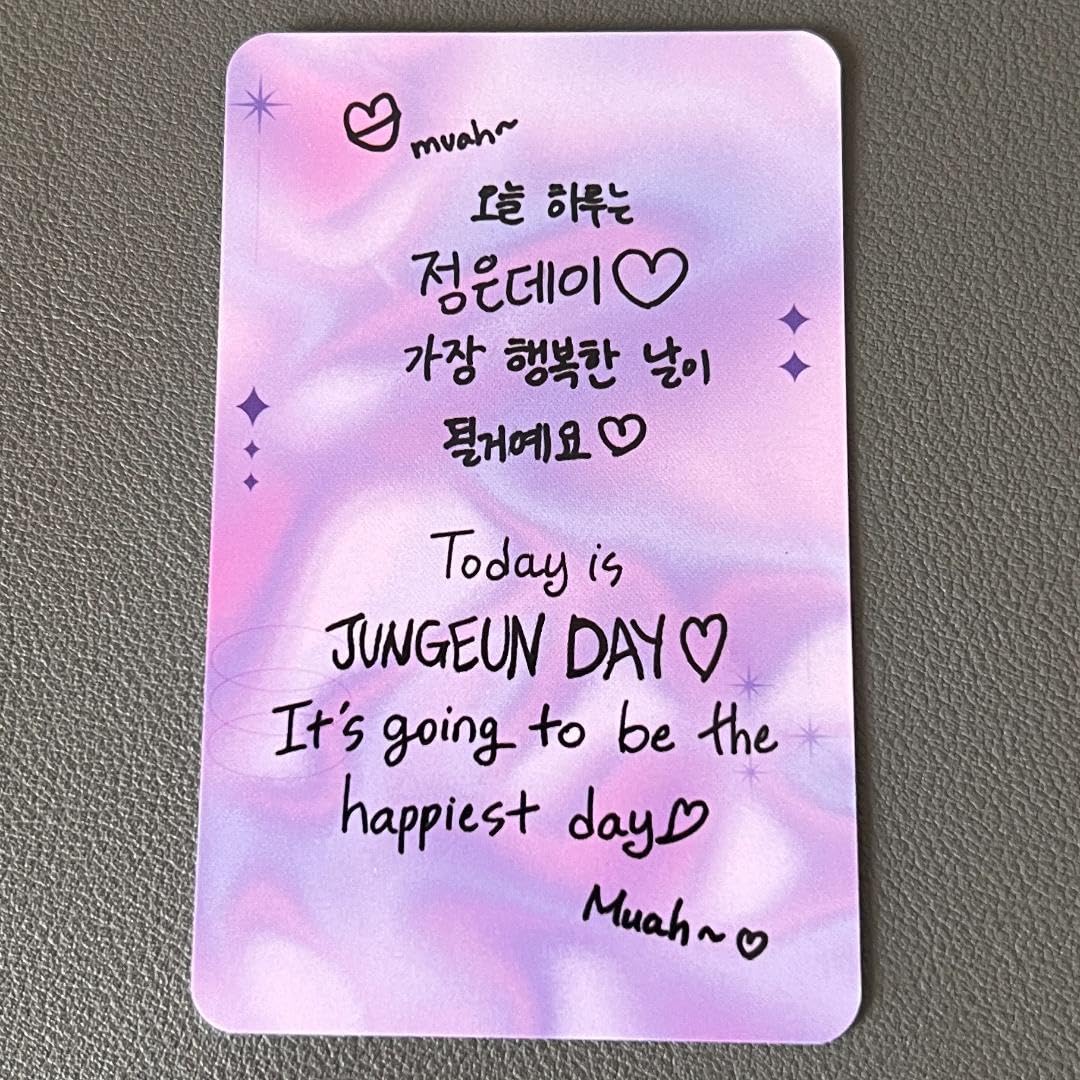 muah~
오늘 하루는
점은데이♡
가장 행복한 날이
될거예요♡
Today is
JUNGEUN DAY♡
It's going to be the
happiest day♡
Muah~♡